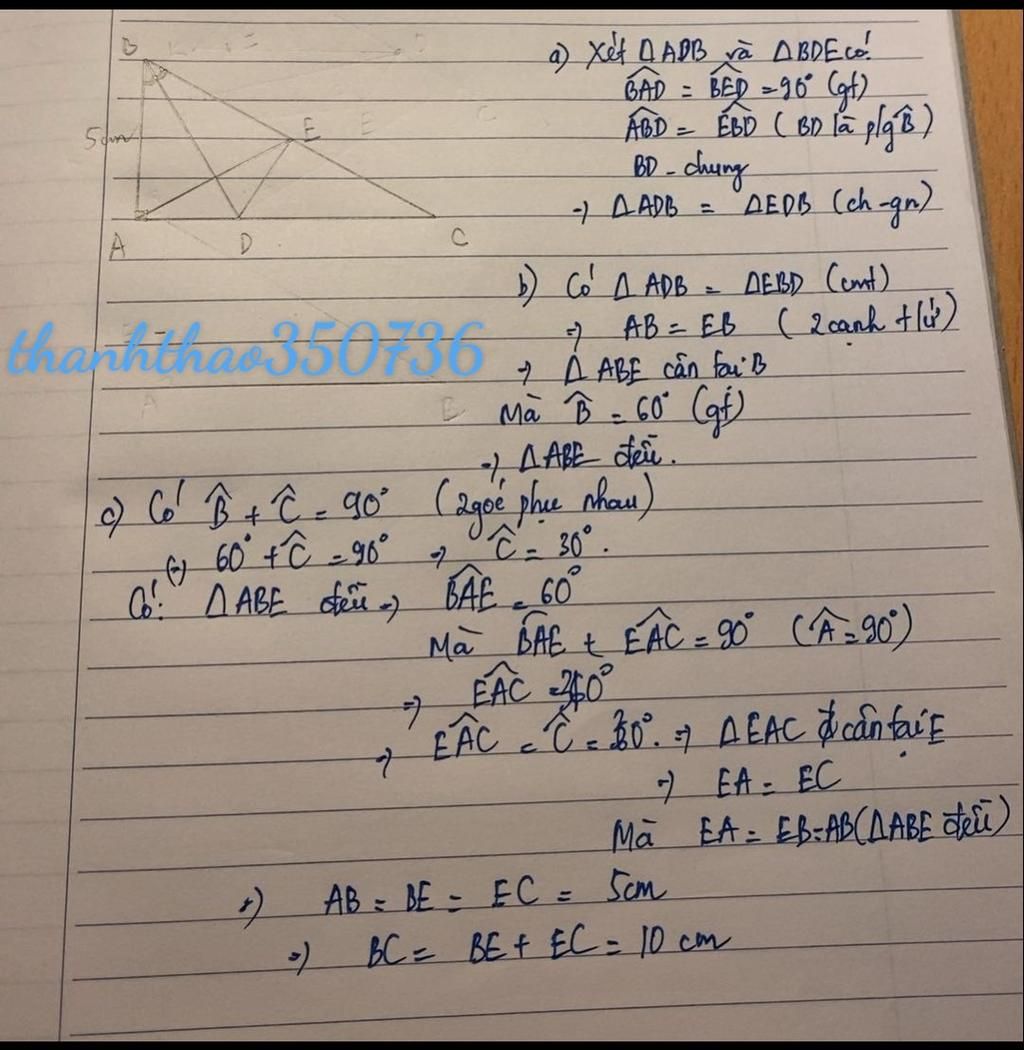 B
5cm
E
A D C
a) Xét ΔADB và ΔBDE có:
BAD^ = BED^ = 90° (gt)
ABD^ = EBD^ ( BD là p/g B^ )
BD - chung
=> ΔADB = ΔEDB (ch-gn)
b) Có ΔADB = ΔEBD (cmt)
=> AB = EB ( 2 cạnh t/ứ )
=> ΔABE cân tại B
Mà B^ = 60° (gt)
=> ΔABE đều.
thanhthao350736
c) Có B^ + C^ = 90° (2 góc phụ nhau)
(=) 60° + C^ = 90° => C^ = 30°.
Có: ΔABE đều => BAE^ = 60°
Mà BAE^ + EAC^ = 90° (A^ = 90°)
=> EAC^ = 30°
=> EAC^ = C^ = 30°. => ΔEAC cân tại E
=> EA = EC
Mà EA = EB = AB (ΔABE đều)
=> AB = BE = EC = 5cm
=> BC = BE + EC = 10 cm